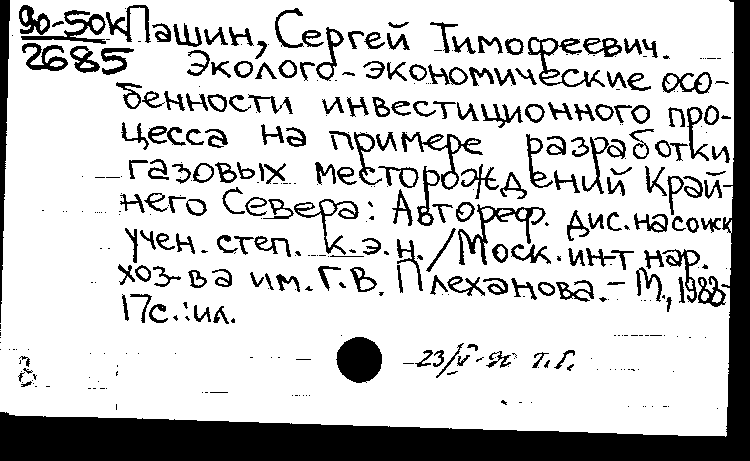 90-50к
2685
Пашин, Сергей Тимофеевич.
Эколого-экономические осо-
бенности инвестиционного про-
цесса на примере разработки
газовых месторождений Край-
него Севера: Автореф. дис. на соиск
учен. степ. к.э.н. / Моск. ин-т нар.
хоз-ва им. Г.В. Плеханова. - М.,
17с.: ил.
23/V-90 Т.Г.